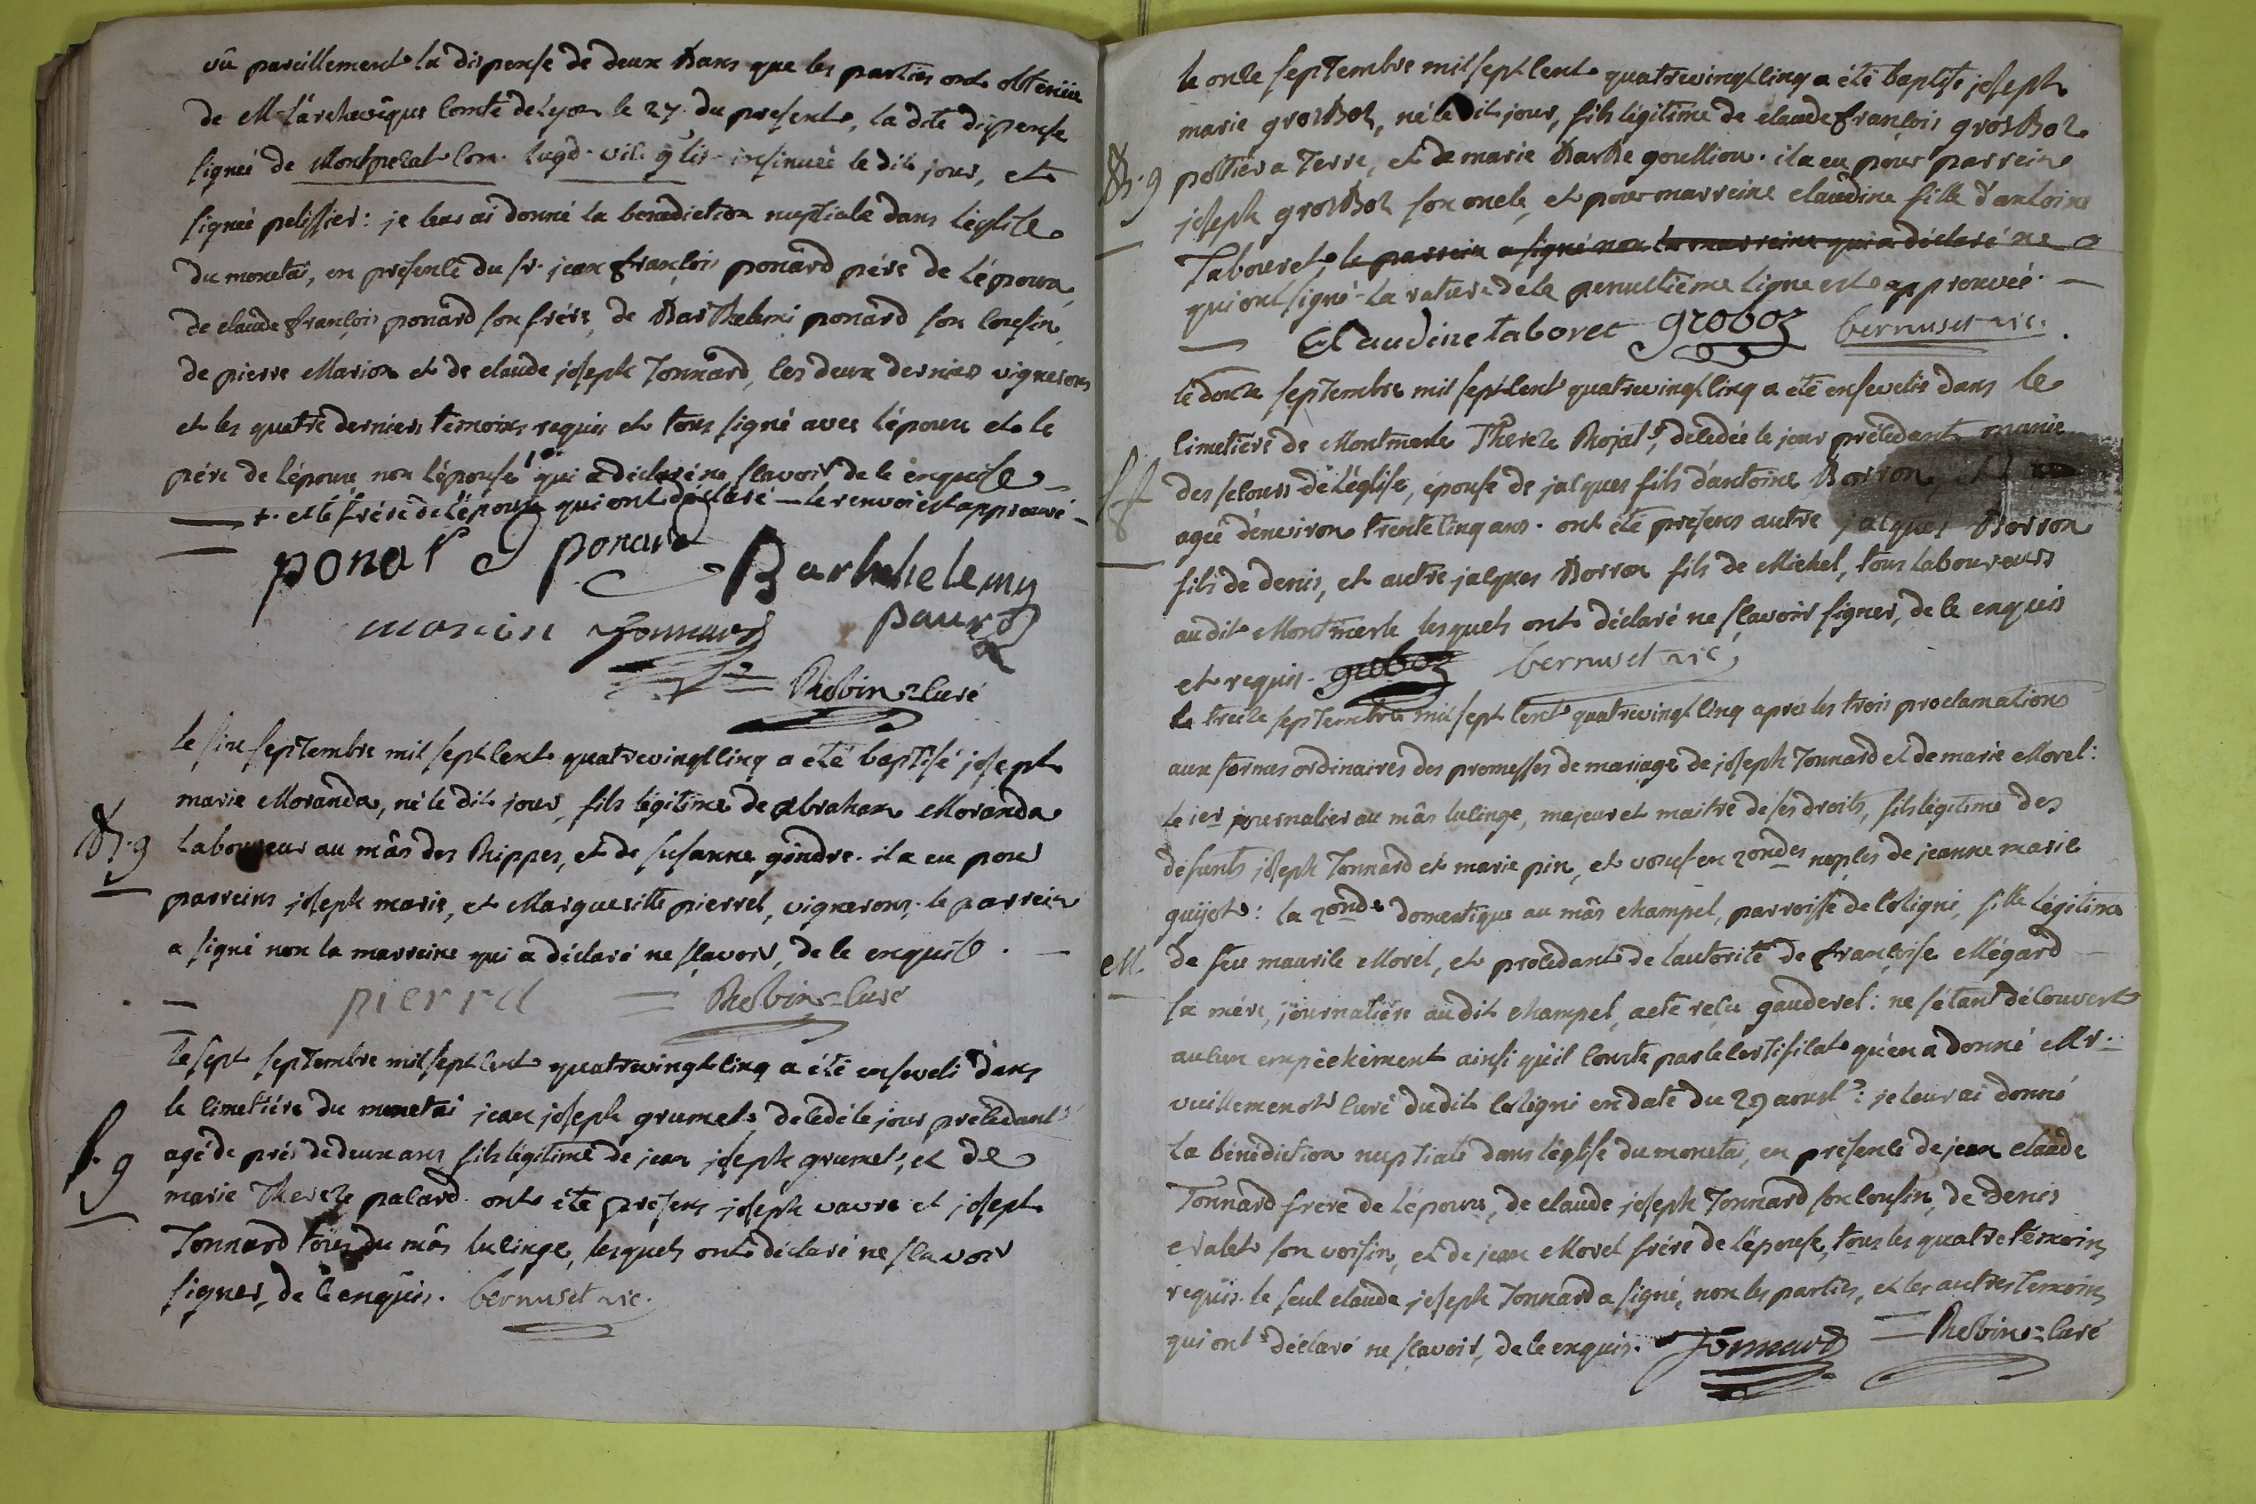 vû pareillement la dispense de deux bans que les parties ont obtenüe
de M. L'archevêque Comte de Lyon le 27. du present, la dite dispense
signée de Montpezat Con. Lugd. vic. glis. insinuée le dit jour, et
signée pelissier: je leur ai donné la benediction nuptiale dans l'église
du monetai, en présence du sr. jean françois ponard pére de l'époux,
de claude françois ponard son frére, de Barthelemi ponard son cousin,
de pierre Marion et de claude joseph Tonnard, les deux derniers vignerons
et les quatre derniers témoins requis et tous signé avec l'époux et le
pére de l'époux non l'épouse + qui a déclaré ne sçavoir de ce enquise
+. et le frére de l'épouse qui ont déclaré — le renvoi est approuvé -
ponar ponard Barthelemy
marion Tonnard
Robin curé
le six septembre mil sept cent quatrevingt cinq a été baptisé joseph
marie Moranda, né le dit jour, fils légitime de abraham Moranda
B. 9 laboureur au mâs des Rippes, et de susanne gindre. il a eu pour
parreins joseph marie, et Margueritte pierrel, vignerons. le parrein
a signé non la marreine qui a déclaré ne sçavoir, de ce enquise.
pierrel Robin curé
le sept septembre mil sept cent quatrevingt cinq a été enseveli dans
le cimetiére du monetai jean joseph grumet, décédé le jour précédant
S. 9 agé de prés de deux ans, fils légitime de jean joseph grumet, et de
marie Thereze palard. ont été présens joseph vavre et joseph
Tonnard tous du mâs lulinge, lesquels ont déclaré ne sçavoir
signer, de ce enquis. bernuset vic.
le onze septembre mil sept cent quatrevingt cinq a été baptisé joseph
marie grosboz, né le dit jour, fils légitime de claude françois grosboz
B. 9 pottier a terre, et de marie barbe goullion. il a eu pour parrein
joseph grosboz son oncle, et pour marreine claudine fille d'antoine
Tabouret, le parrein a signé non la marreine qui a déclaré ne
qui ont signé. la rature de la penultiéme ligne est approuvée.
Claudine taboret groboz bernuset vic.
le douze septembre mil sept cent quatrevingt cinq a été ensevelie dans le
cimetiére de Montmerle Thereze Rojat, décédée le jour précédant munie
des secours de l'église, épouse de jacques fils d'antoine Borron,
agée d'environ trente cinq ans. ont été presens autre jacques Borron
fils de denis, et autre jacques Borron fils de Michel, tous laboureurs
audit Montmerle lesquels ont déclaré ne sçavoir signer, de ce enquis
et requis. groboz bernuset vic.
le treize septembre mil sept cent quatrevingt cinq aprés les trois proclamations
aux formes ordinaires des promesses de mariage de joseph Tonnard et de marie Morel:
le 1er journalier au mâs lulinge, majeur et maitre de ses droits, fils légitime des
défunts joseph Tonnard et marie pin, et veuf en 2ondes noples de jeanne marie
guijot: la 2onde domestique au mâs champel, parroisse de Coligni, fille légitime
M. de feu maurile Morel, et procédant de l'autorité de françoise Mégard
sa mére, journaliére audit champel, acte reçu gauderel: ne s'étant découvert
aucun empéchement ainsi qu'il conste par le certificat qu'en a donné Mr.
vuillemenot curé dudit coligni en date du 29 aoust: je leur ai donné
la bénédiction nuptiale dans l'église du monetai, en présence de jean claude
Tonnard frére de l'époux, de claude joseph Tonnard son cousin, de denis
son voisin, et de jean Morel frére de l'épouse, tous les quatre témoins
requis. le seul claude joseph Tonnard a signé, non les parties, et les autres témoins
qui ont déclaré ne sçavoir, de ce enquis. Tonnard Robin curé